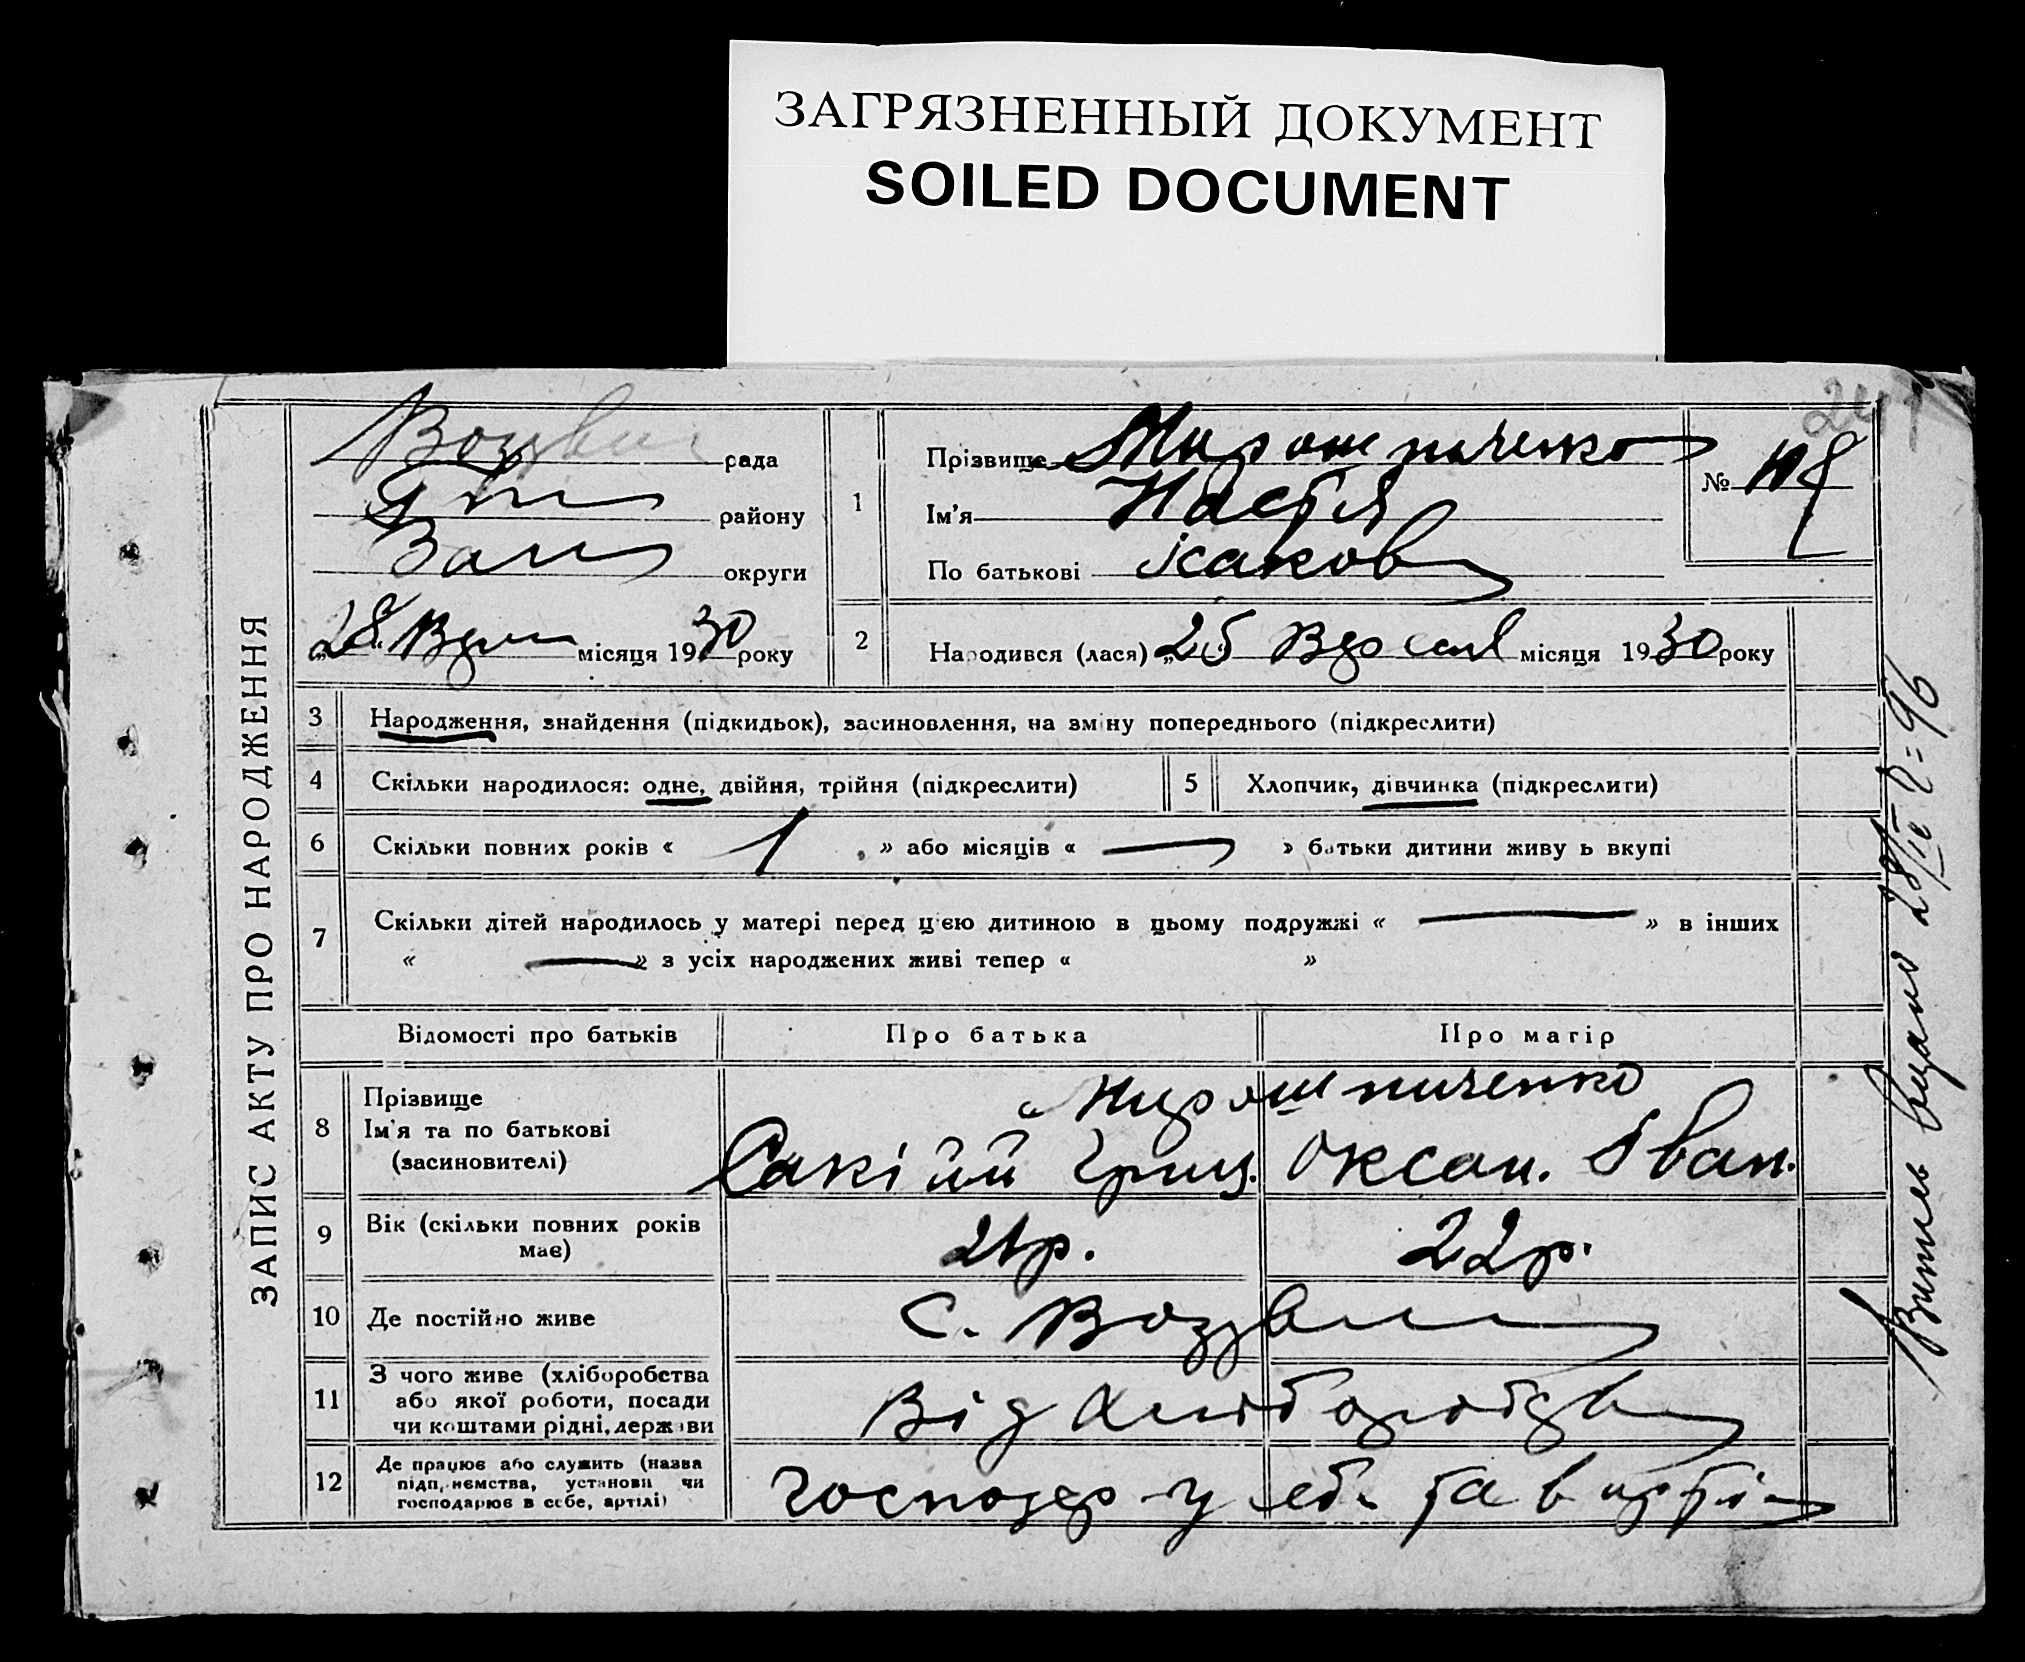 ЗАГРЯЗНЕННЫЙ ДОКУМЕНТ
SOILED DOCUMENT
ЗАПИС АКТУ ПРО НАРОДЖЕННЯ
рада
району
округи
„28“ місяця 1930 року
1
Прізвище Мирошниченко
Ім'я Настя
По батькові Ісаков
№
2
Народився (лася) „25 Вересня місяця 1930 року
3 Народження, знайдення (підкидьок), засиновлення, на зміну попереднього (підкреслити)
4 Скільки народилося: одне, двійня, трійня (підкреслити)
5 Хлопчик, дівчинка (підкреслити)
6 Скільки повних років « 1 » або місяців « — » батьки дитини живуть вкупі
7 Скільки дітей народилось у матері перед цією дитиною в цьому подружжі « — » в інших
« — » з усіх народжених живі тепер « »
Відомості про батьків Про батька Про матір
8 Прізвище
Ім'я та по батькові
(засиновителі)
Мирошниченко
Сакій Гриц. Оксан. Іван.
9 Вік (скільки повних років
має)
21р. 22р.
10 Де постійно живе
с.
11 З чого живе (хліборобства
або якої роботи, посади
чи коштами рідні, держави
Від
12 Де працює або служить (назва
підприємства, установи чи
господарює в себе, артілі)
Господар у себ. та в артілі
Витяг видано 28/IX